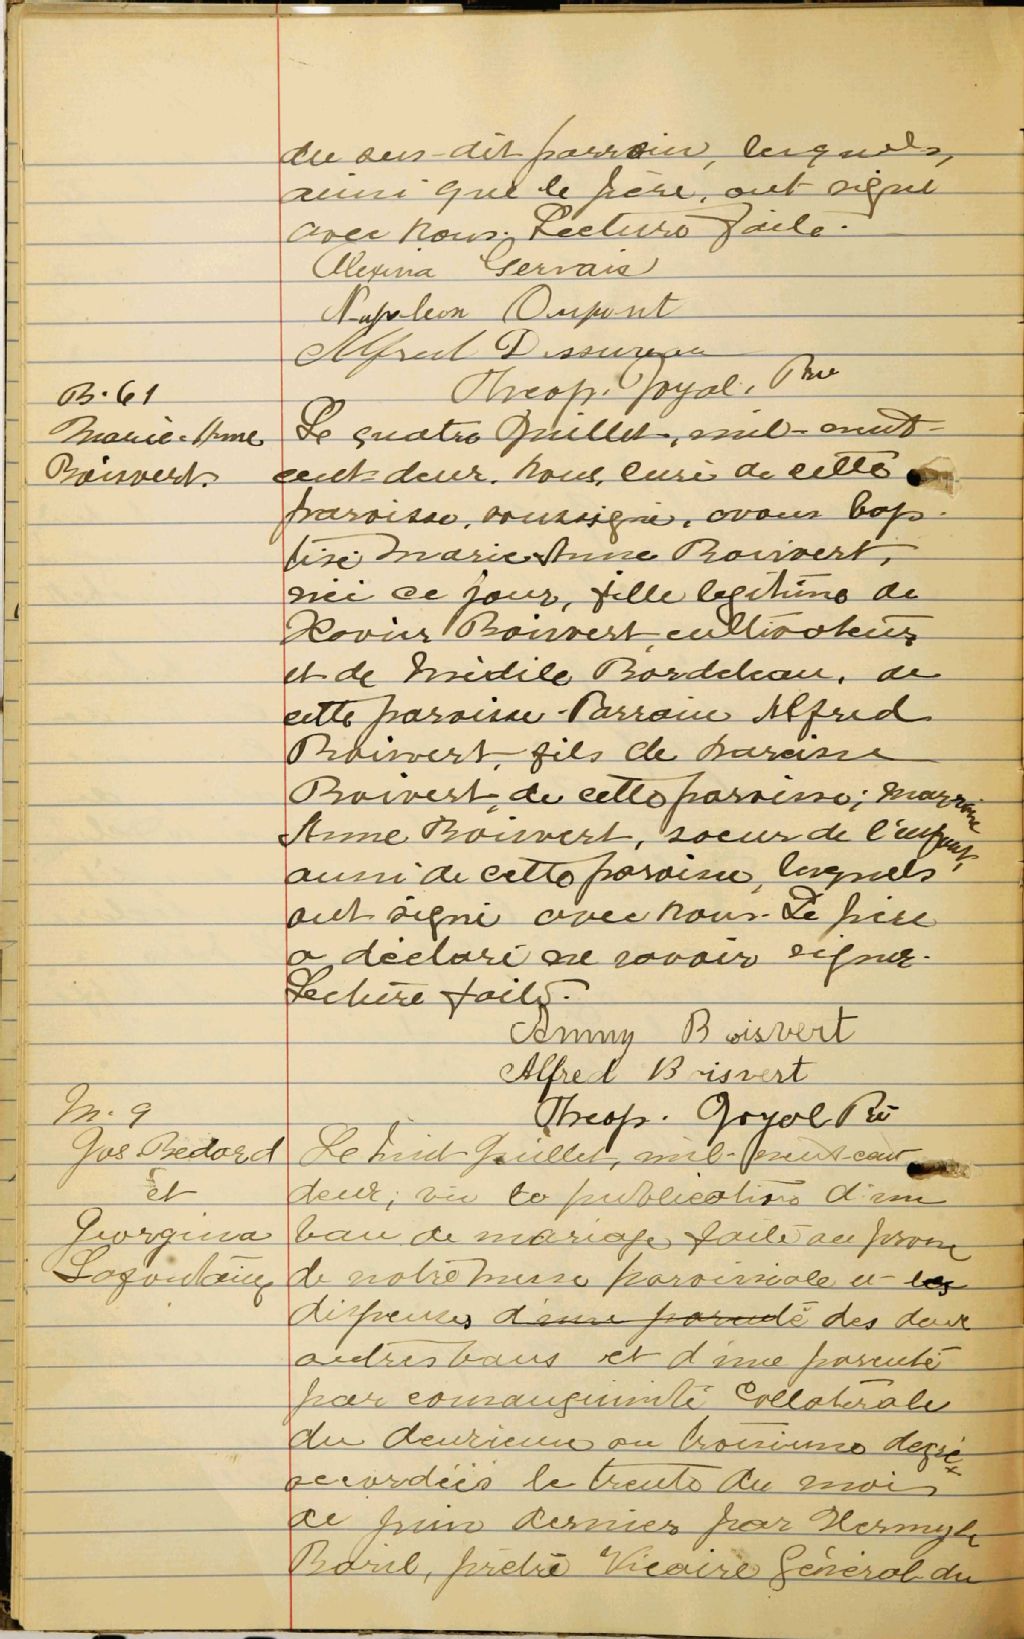 du sus-dit parrain, lesquels,
ainsi que le père, ont signé
avec nous. Lecture faite.
Alexina Gervais
Napoleon Dupont
Alfred Dessureau
Theop. Joyal, Ptre
B. 61
Marie-Anne
Boisvert.
Le quatre Juillet, mil-neuf-
cent-deux, nous, curé de cette
paroisse, soussigné, avons bap-
tisé Marie Anne Boisvert,
née ce jour, fille legitime de
Xavier Boisvert, cultivateur
et de Médile Bordeleau, de
cette paroisse - Parrain Alfred
Boisvert, fils de Narcisse
Boisvert, de cette paroisse; marraine
Anne Boisvert, soeur de l'enfant,
aussi de cette paroisse, lesquels
ont signé avec nous. Le père
a déclaré ne savoir signer.
Lecture faite.
Anny Boisvert
Alfred Boisvert
Theop. Joyal Ptr
M. 9
Jos Bedard
et
Georgina
Lafontaine
Le huit Juillet, mil-neuf-cent
deux; vu la publication d'un
ban de mariage faite au prone
de notre messe paroissiale et les
dispenses d'une parenté des deux
autres bans et d'une parenté
par consanguinité collatérale
du deuxieme au troisieme degré
accordées le trente du mois
de juin dernier par Hermyle
Baril, prêtre Vicaire Général du